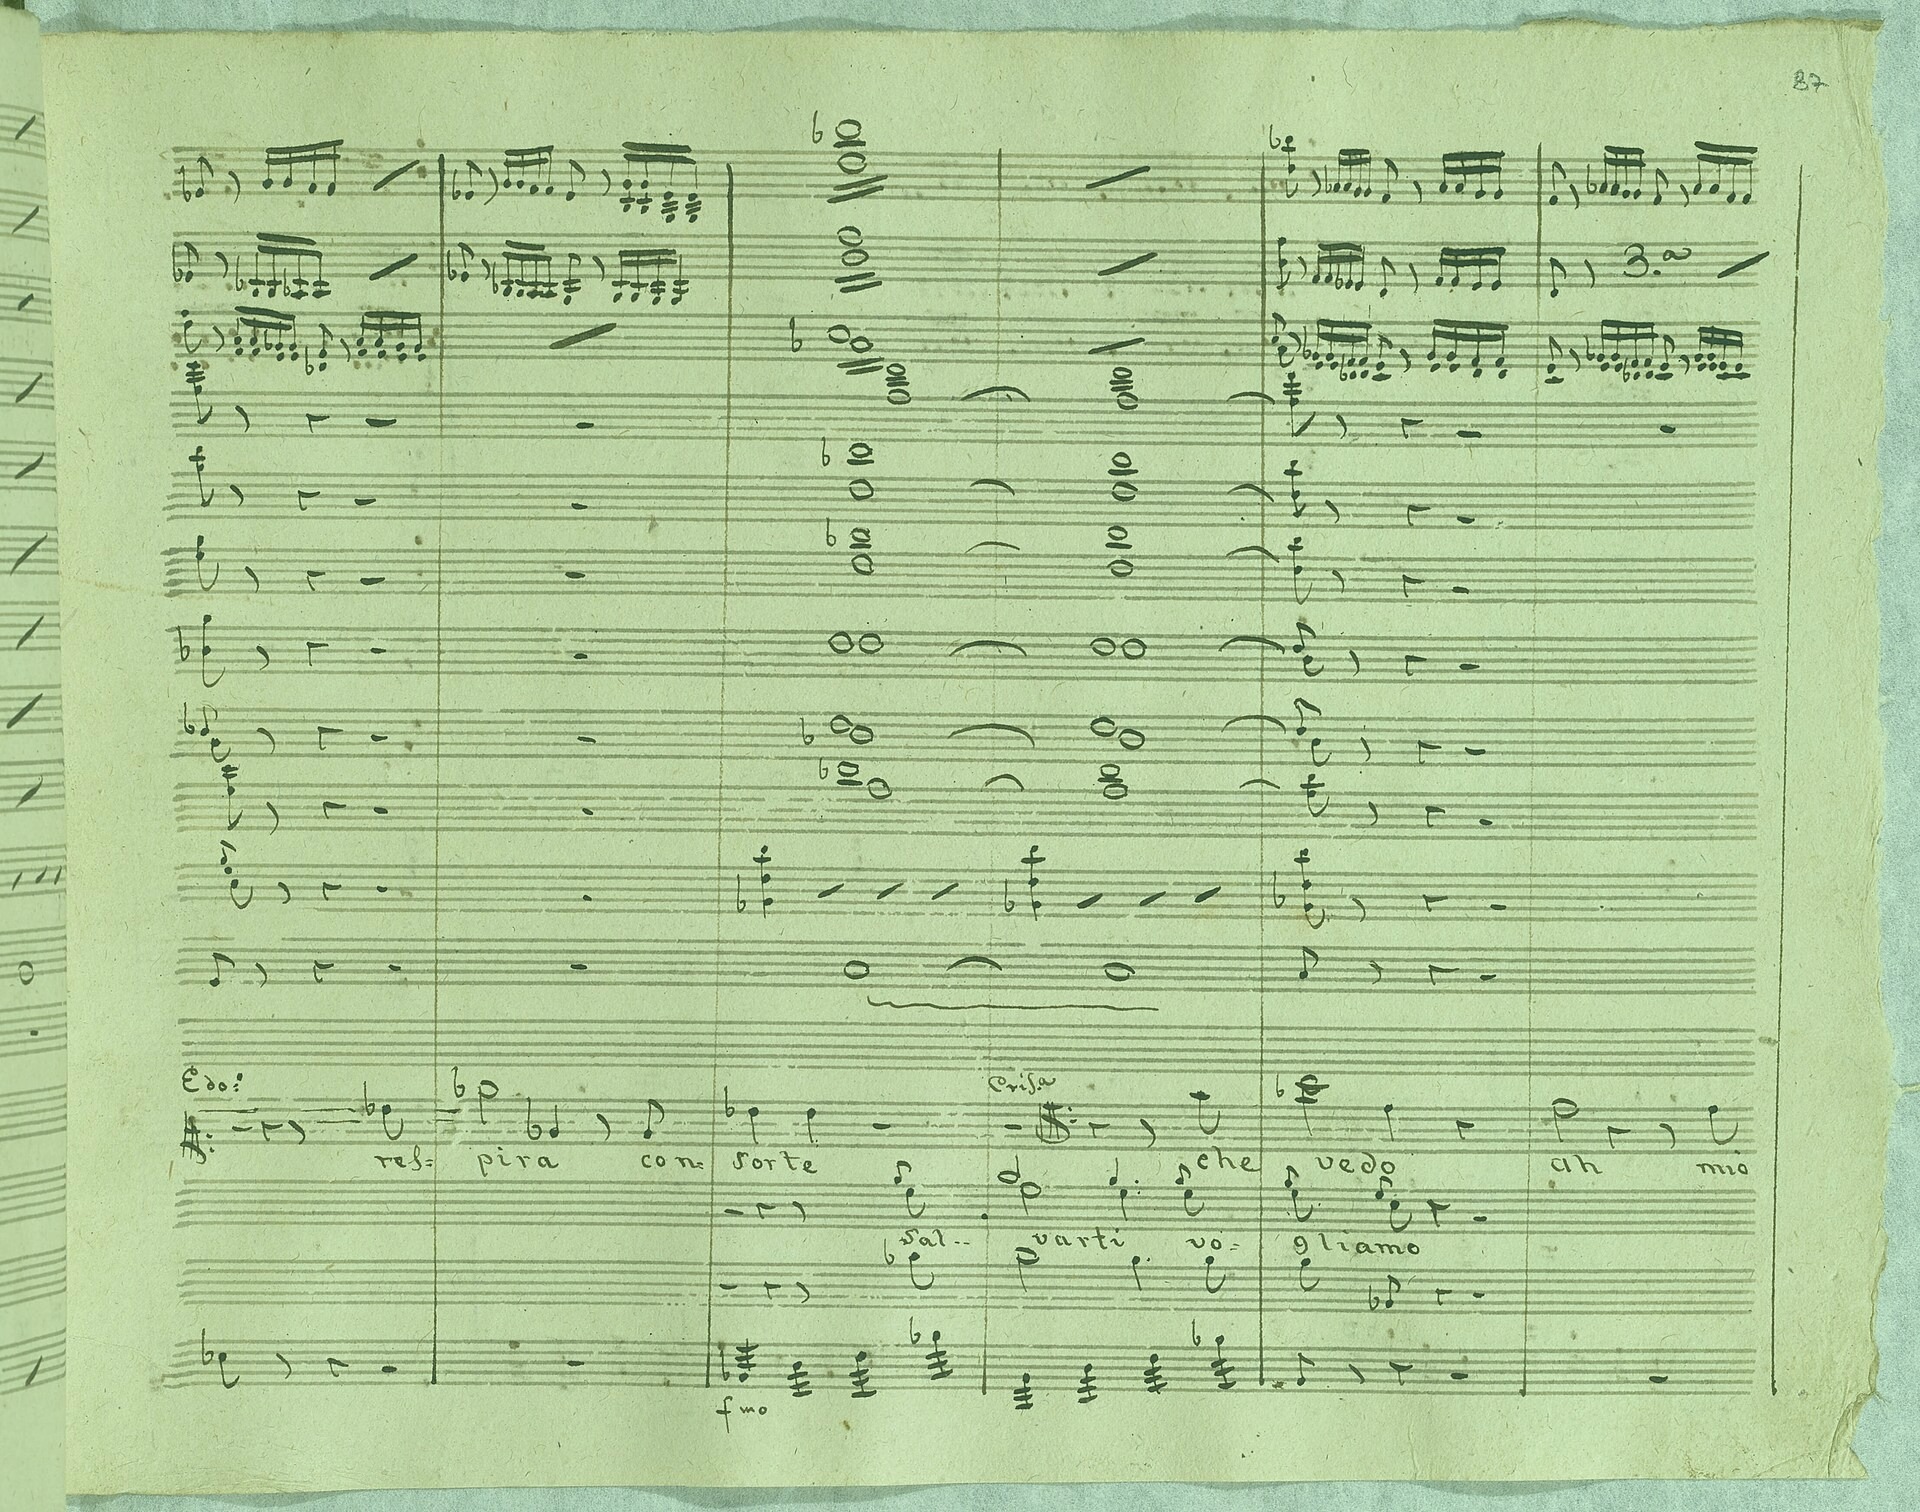 87
3.a
Edo: Crisa
res= pira con= sorte che vedo ah mio
sal-- varti vo= gliamo
fmo